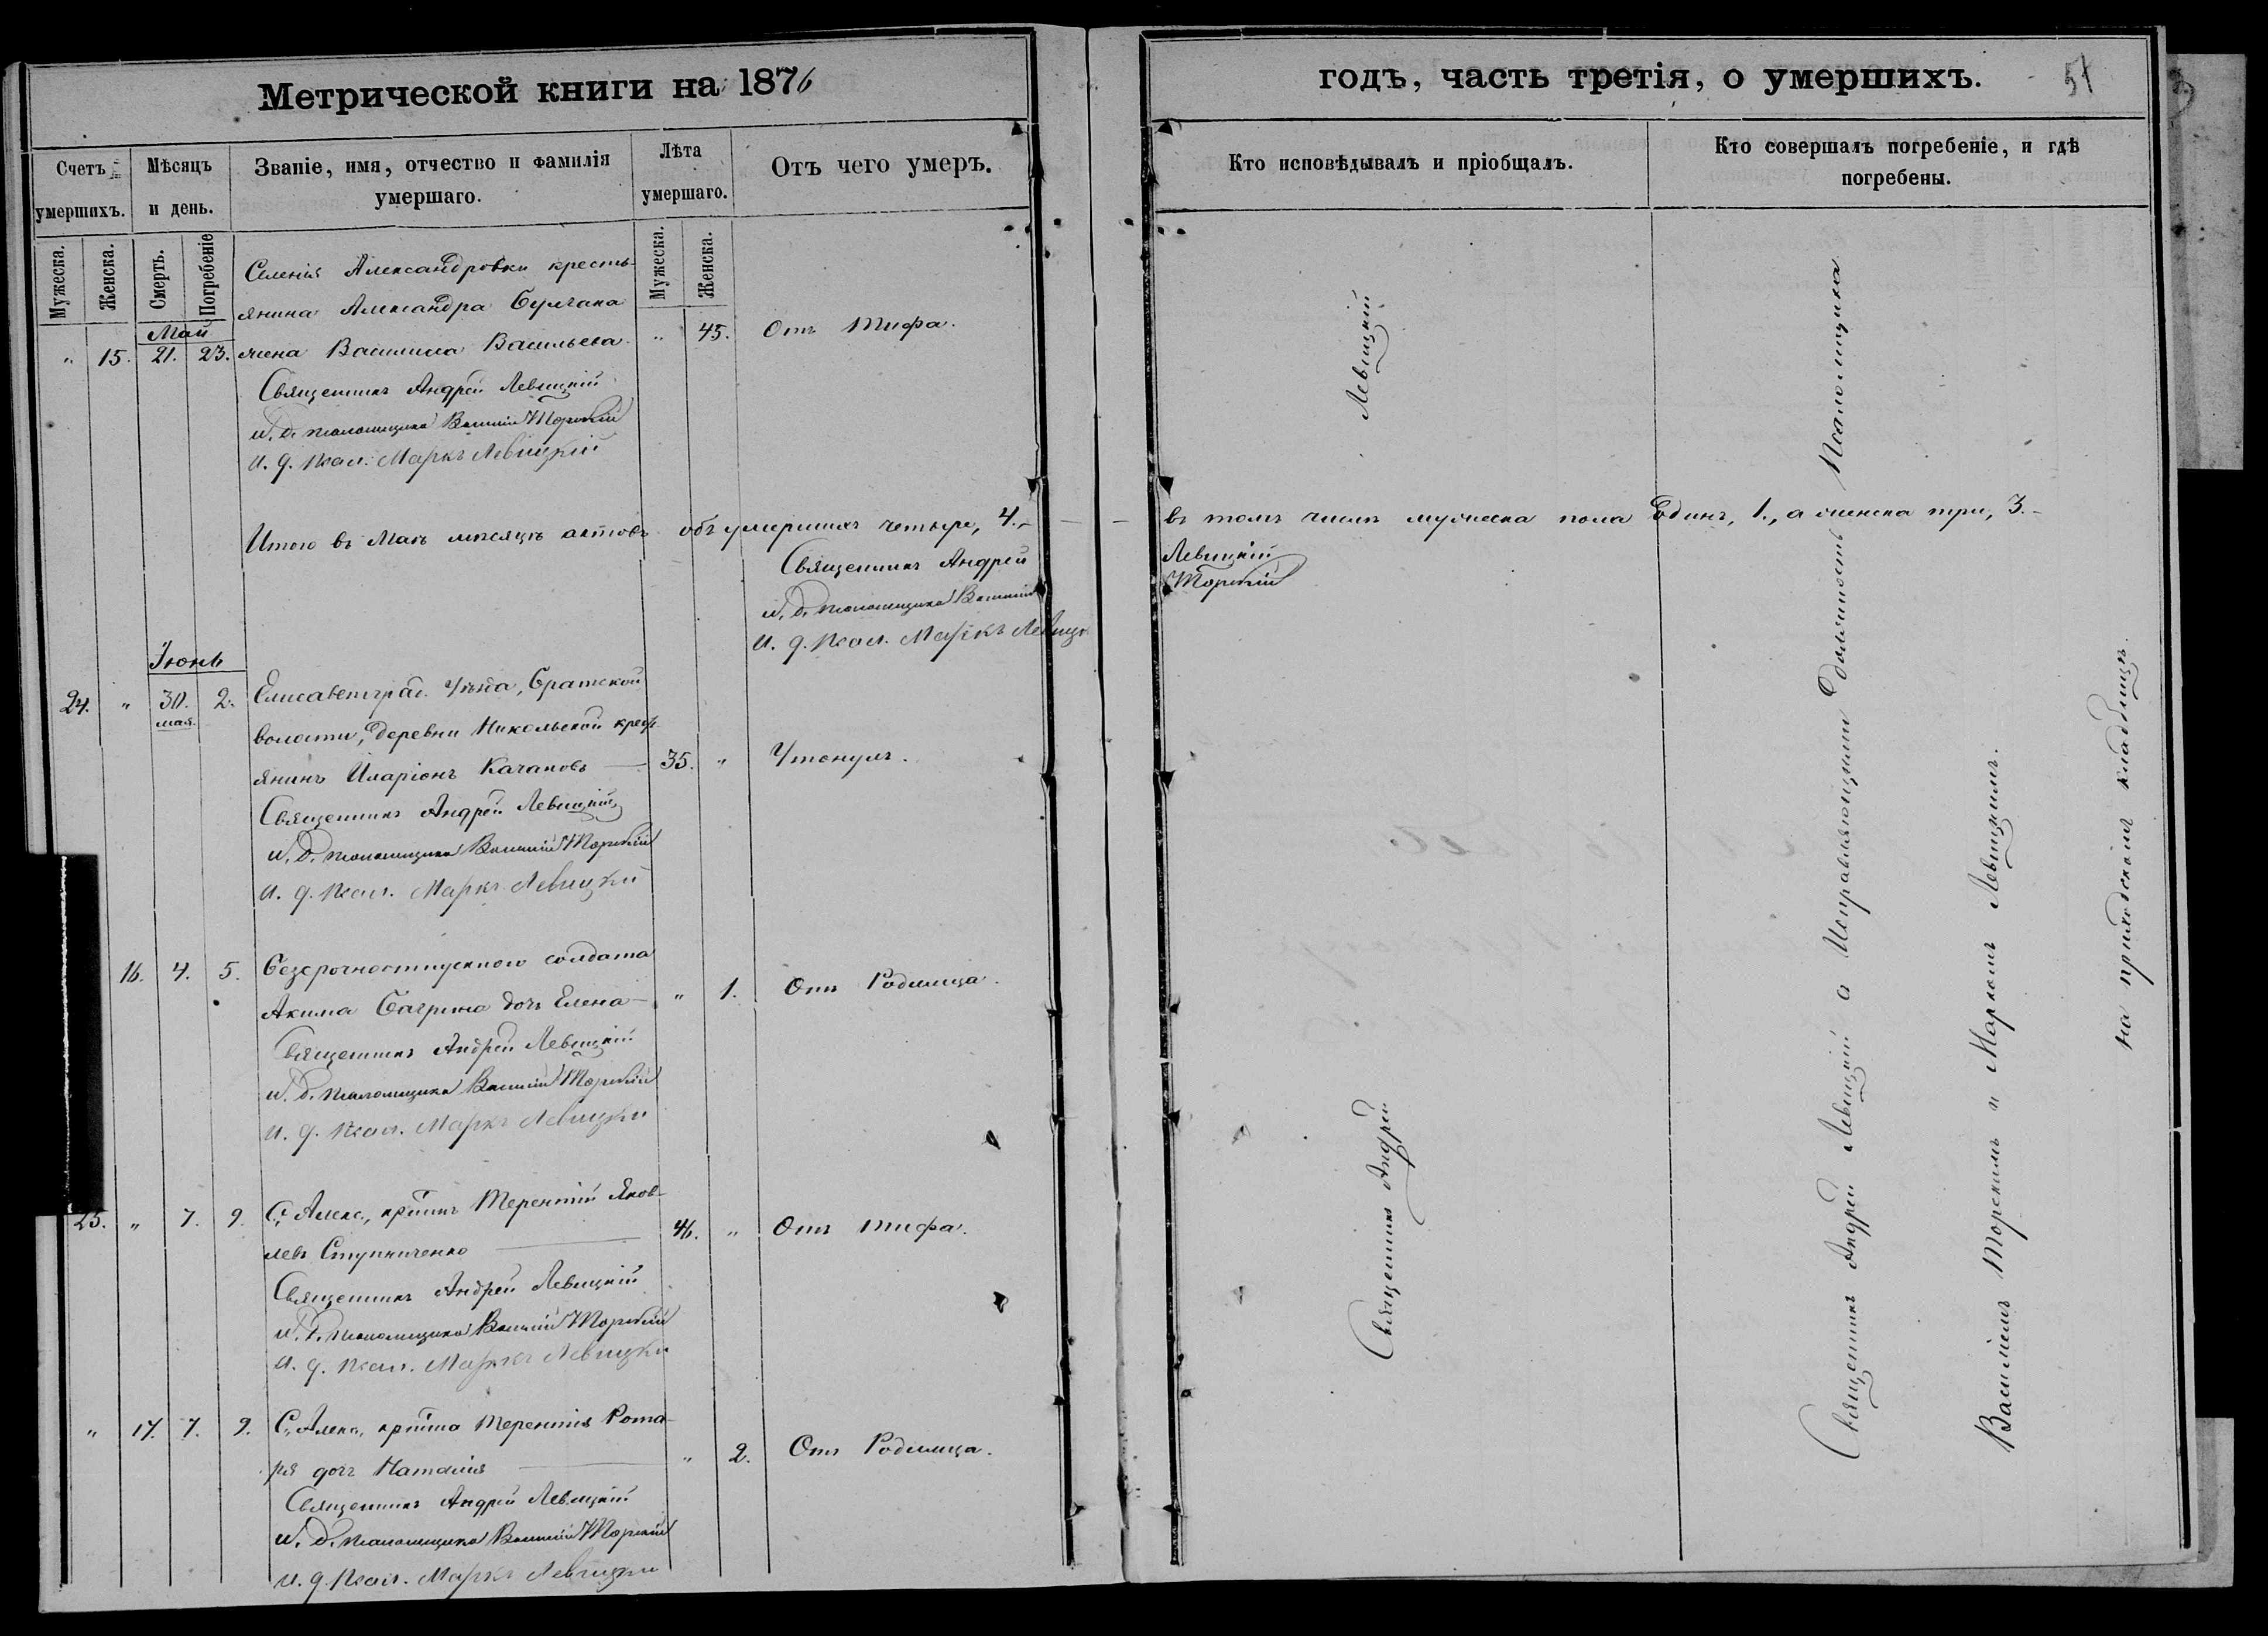 Метрической книги на 1876
Счетъ умершихъ.
Мѣсяцъ и день.
Званіе, имя, отчество и фамилія
умершаго.
Лѣта
умершаго.
Отъ чего умеръ.
Мужеска.
Женска.
Смерть.
Погребеніе
Мужеска.
Женска.
Май
Селенія Александровки кресть-
янина Александра Булгака
„ 15. 21. 23. жена Василиса Васильева „ 45. Отъ тифа.
Священникъ Андрей Левицкій
И. д. псаломщика Василій Торскій
И. д. псал. Маркъ Левицкій
Итого въ Маѣ мѣсяцѣ актовъ объ умершихъ четыре, 4.,–
Священникъ Андрей
И. д. псаломщика Василій
И. д. псал. Маркъ Левицк
Іюнь
24. „ 30. 2. Елисаветград. Уѣзда, Братской
мая.
волости, деревни Никольской крест
янинъ Иларіонъ Качановъ — 35. „ Утонулъ.
Священникъ Андрей Левицкій
И. д. псаломщика Василій Торскій
И. д. псал. Маркъ Левицкій
16. 4. 5. Безсрочноотпускного солдата
Акима Багрина дочь Елена „ 1. Отъ Родимца.
Священникъ Андрей Левицкій
И. д. псаломщика Василій Торскій
И. д. псал. Маркъ Левицкій
25. „ 7. 9. С. Алекс., кр-инъ Терентій Яков-
левъ Ступниченко 46. „ Отъ тифа.
Священникъ Андрей Левицкій
И. д. псаломщика Василій Торскій
И. д. псал. Маркъ Левицкій
„ 17. 7. 9. С. Алекс., кр-ина Терентія Рота-
ря дочь Наталія „ 2. Отъ Родимца.
Священникъ Андрей Левицкій
И. д. псаломщика Василій Торскій
И. д. псал. Маркъ Левицкій
годъ, часть третія, о умершихъ.
51
Кто исповѣдывалъ и пріобщалъ.
Кто совершалъ погребеніе, и гдѣ
погребены.
въ томъ числѣ мужеска пола Одинъ, 1., а женска три, 3.–
Левицкій
Торскій
Священникъ Андрей Левицкій
Священникъ Андрей Левицкій а Исправляющими Должность Псаломщика
Василіемъ Торскимъ и Маркомъ Левицкимъ.
на приходскомъ кладбищѣ.